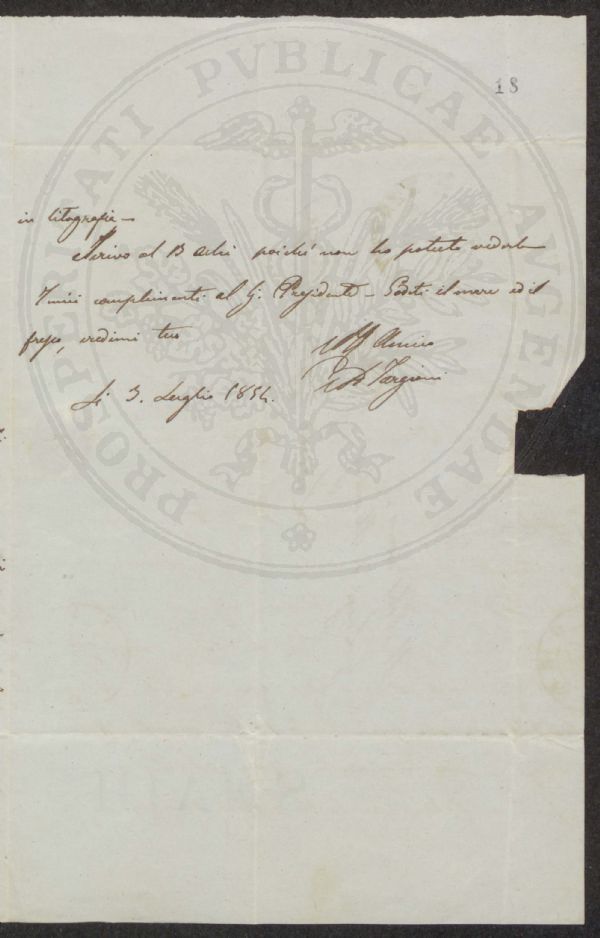 18
PROSPERITATI PVBLICAE AVGENDAE
in litografia –
Scrivo al B poiché non ho potuto vederlo
I miei complimenti al Presidente – Goditi il mare ed il
fresco, credimi tuo
Amico
Targioni
Lì 3. Luglio 1854.